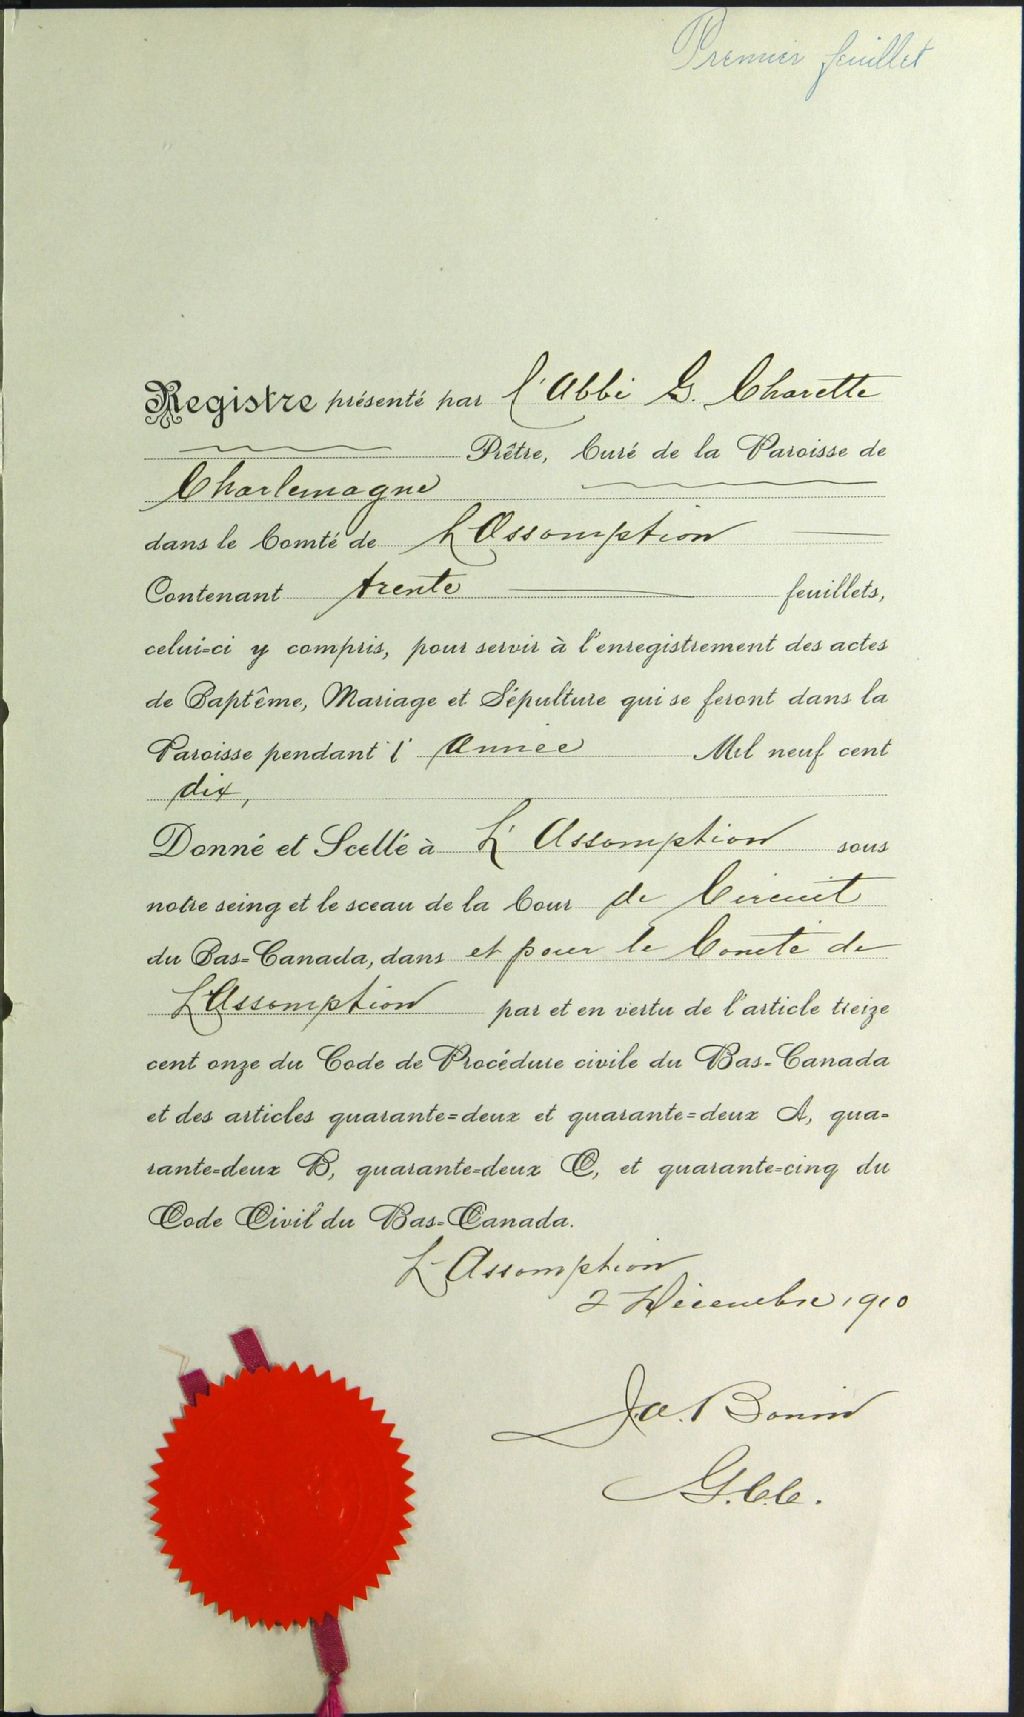 Premier feuillet
Registre présenté par l'Abbé G. Charette
Prêtre, Curé de la Paroisse de
Charlemagne
dans le Comté de L'Assomption
Contenant trente feuillets,
celui=ci y compris, pour servir à l'enregistrement des actes
de Baptême, Mariage et Sépulture qui se feront dans la
Paroisse pendant l' Année Mil neuf cent
dix,
Donné et Scellé à L'Assomption sous
notre seing et le sceau de la Cour de Circuit
du Bas=Canada, dans et pour le Comté de
L'Assomption par et en vertu de l'article treize
cent onze du Code de Procédure civile du Bas=Canada
et des articles quarante=deux et quarante=deux A, qua=
rante=deux B, quarante=deux C, et quarante=cinq du
Code Civil du Bas=Canada.
L'Assomption
2 Décembre 1910
J.A. Bonin
G.C.C.